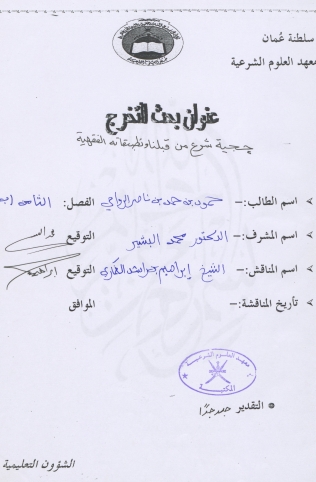 سلطنة عُمان
معهد العلوم الشرعية
عنوان بحث التخرج
حجية شرع من قبلنا وتطبيقاته الفقهية
اسم الطالب:- حمود بن حمد بن ناصر الفصل: الثامن
اسم المشرف:- الدكتور محمد البشير التوقيع
اسم المناقش:- الشيخ إبراهيم بن راشد التوقيع
تأريخ المناقشة:- الموافق
معهد العلوم الشرعية
المكتبة
التقدير جيد جدًا
الشؤون التعليمية